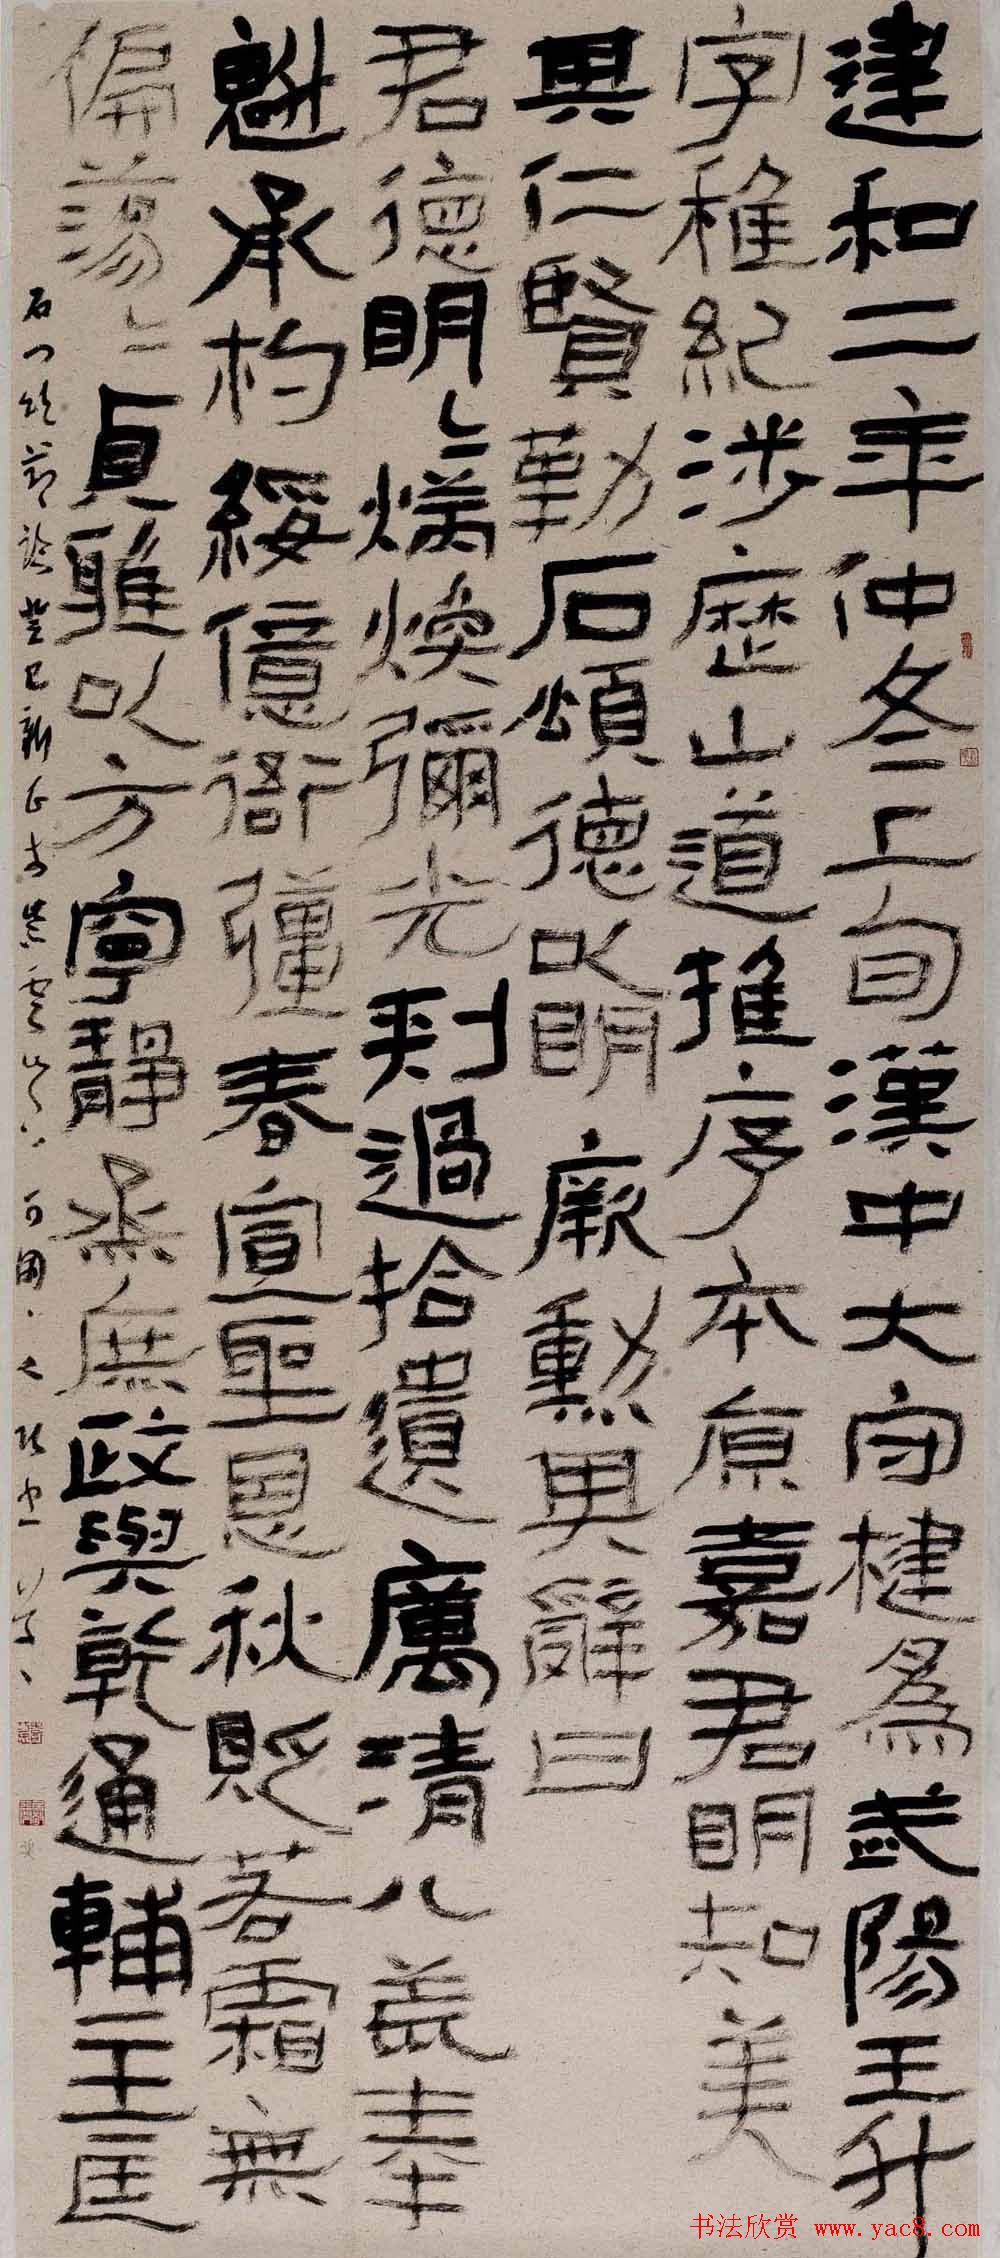 建和二年仲冬上旬漢中大守楗為武陽王升
字稚紀涉歷山道推序本原嘉君明知美
其仁賢勒石頌德以明厥勳其辭曰
君德明〻炳煥彌光刺過拾遺厲清八荒奉
魁承杓綏億衙彊春宣聖恩秋貶若霜無
偏蕩〻貞雅以方寧靜烝庶政與乾通輔主匡
石門頌節臨癸巳新正于
书法欣赏 www.yac8.com